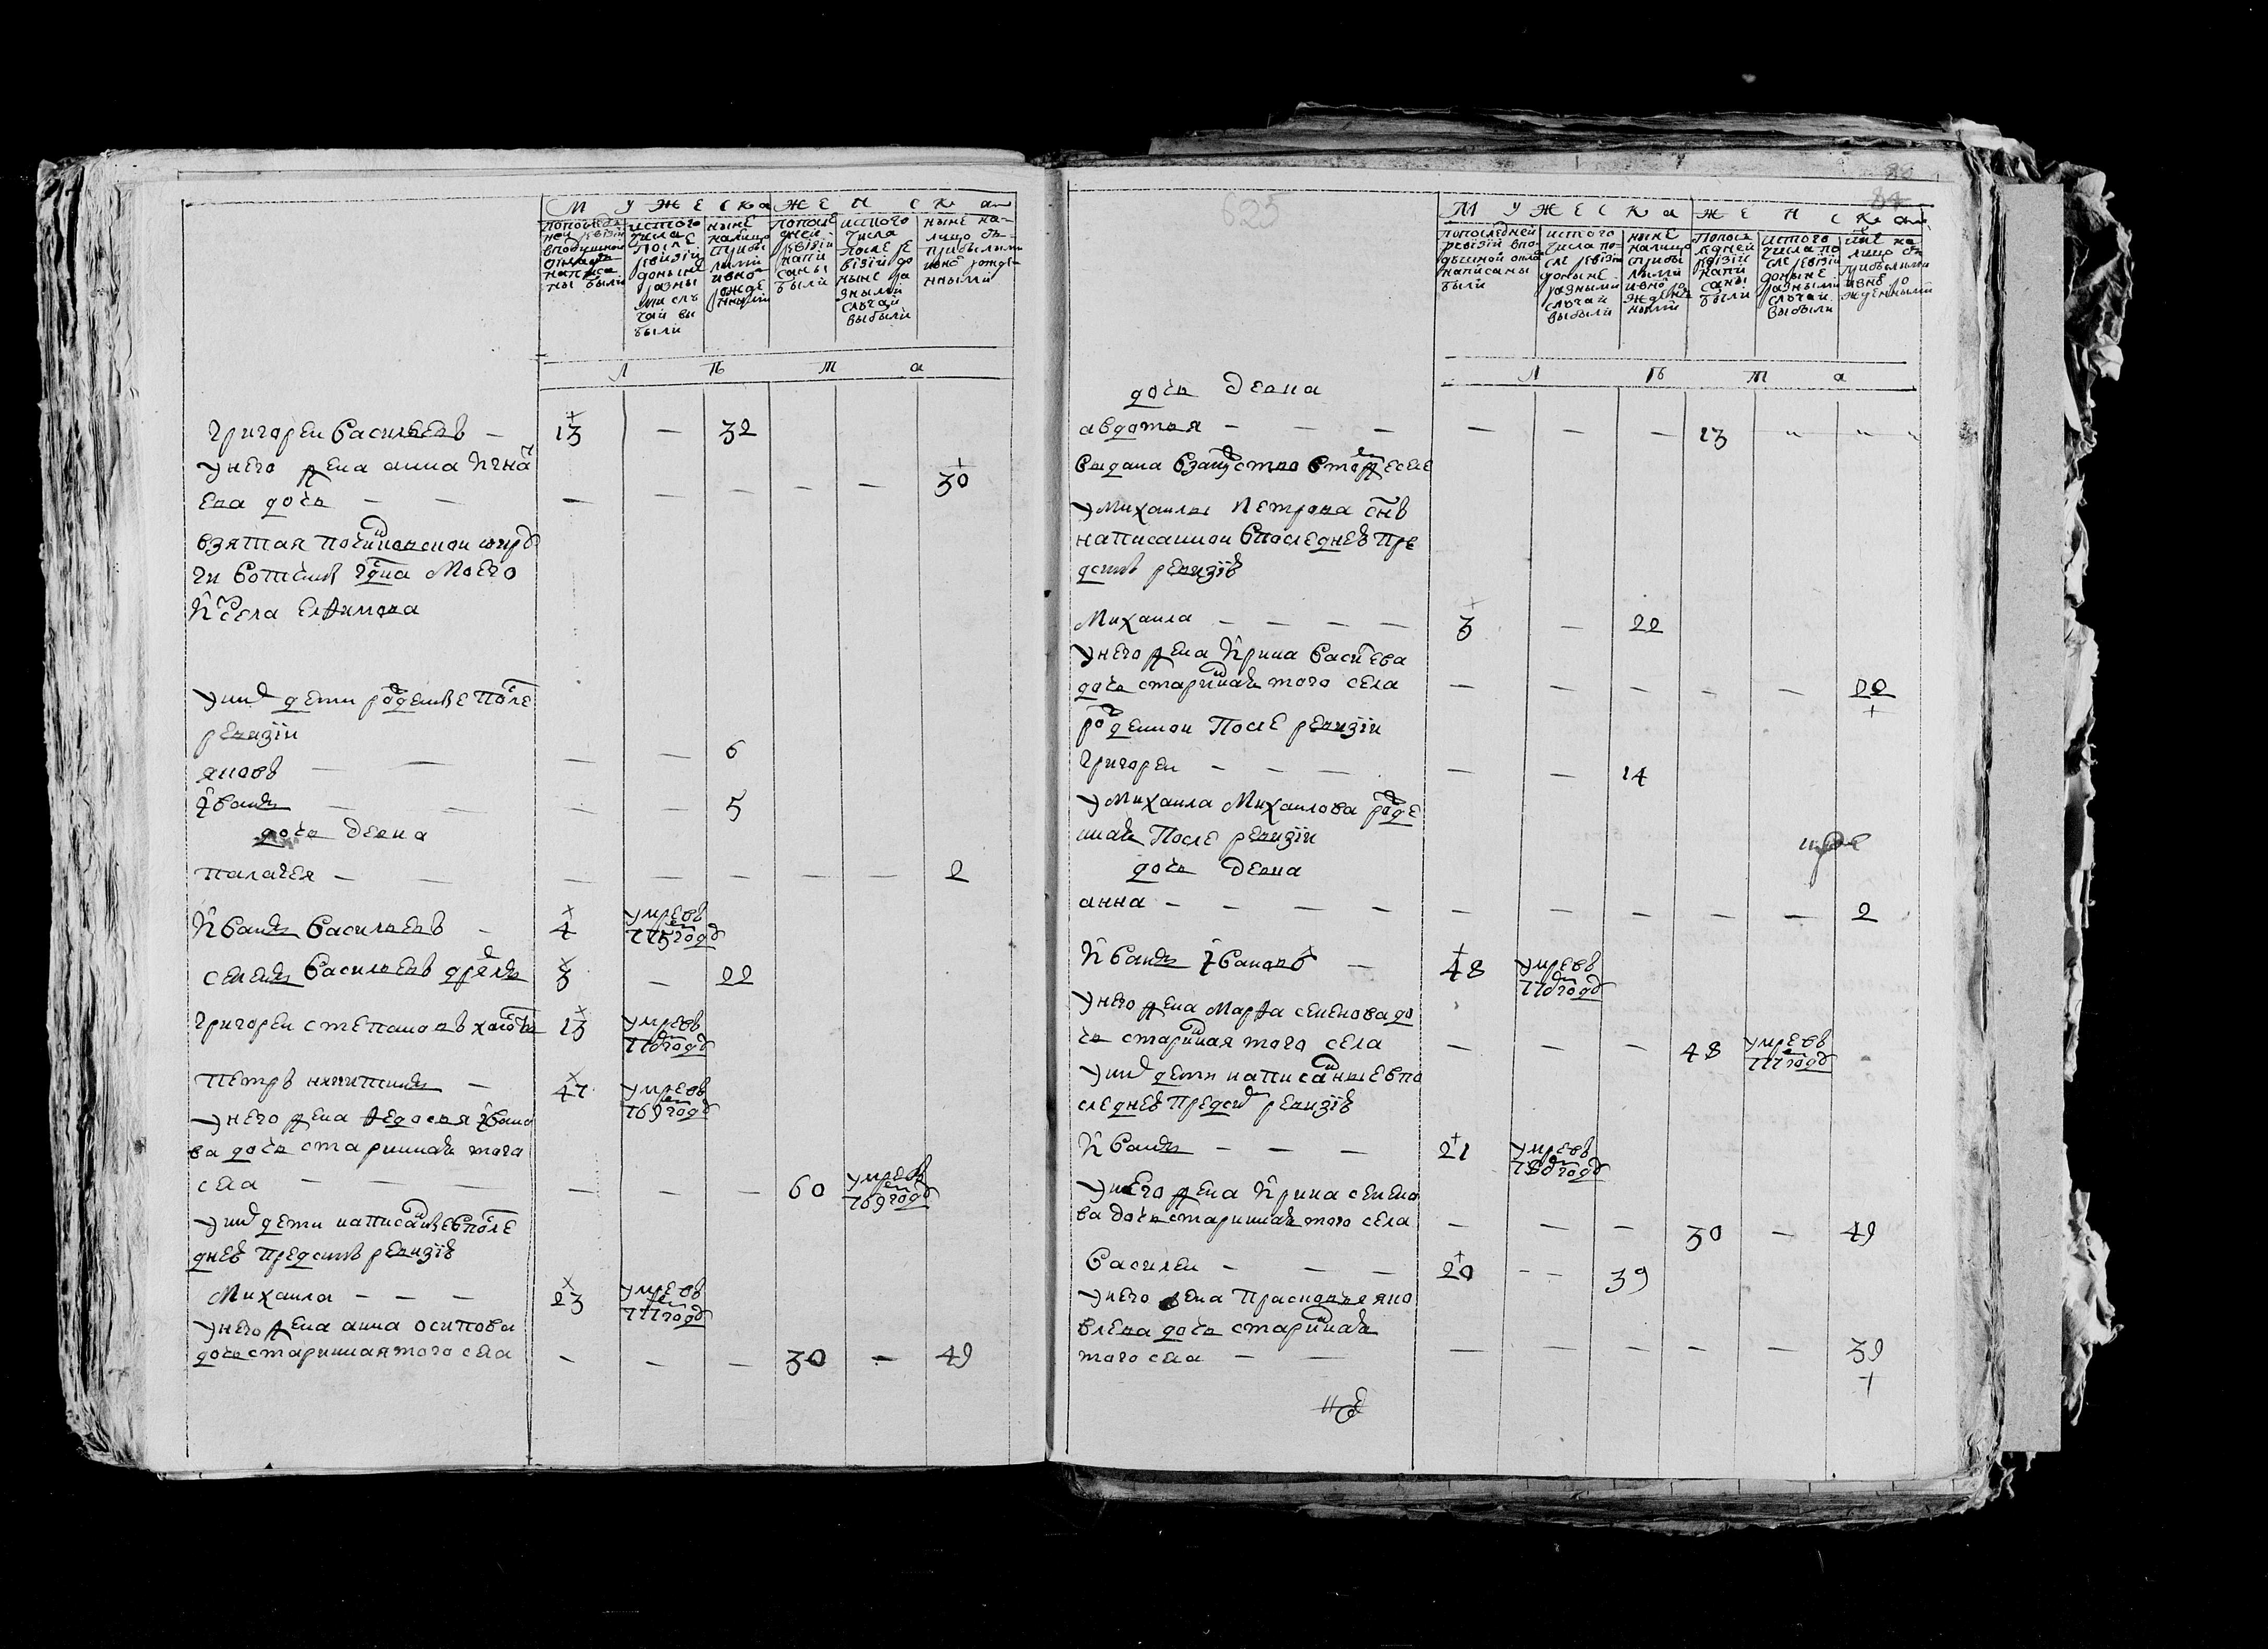 Мужеска Женска
пополедъ
ней ревизии
вподушной
окладъ
написа
ны были
истого
числа
после
ревизии
доныне
разны
ми слу
чаи вы
были
ныне
налицо
сприбы
лыми
ивно
рожде
нными
попосле
дней
ревизии
напи
саны
были
истого
числа
после ре
визии до
ныне ра
зными
случаи
выбыли
ныне на
лицо съ
прибылыми
ивно рожде
нными
Лѣта
Григореи Васильевъ — 13 — 32
унего жена анна Игна
ева дочь — — — — — — — 30
взятая
Моего
села
уних дети роденые после
ревизии
яковъ — — — — 6
Иванъ — — — — 5
дочь девка
палагея — — — — — — — 2
Иванъ Васильевъ — 4 умревъ
775 году
семенъ Васильевъ 3 — 22
Григореи степановъ 13 умревъ
770 году
петръ никитинъ — 47 умревъ
769 году
унего жена Федосья Ивано
ва дочь стариннаѧ того
села — — — — — — 60 умревъ
769 году
уних дети написаные впосле
днеѣ пред сим ревизиѣ
Михаила — — — 23 умревъ
777 году
унего жена анна осипова
дочь стариная того села — — — 30 — 49
625
Мужеска Женска
попоследней
ревизии впо
душной окла
написаны
были
истого
числа по
сле ревизи
доныне
разными
случаи
выбыли
ныне
налицо
сприбы
лыми
ивно ро
жден
ными
попосле
дней
ревизии
напи
саны
были
истого
числа по
сле ревизии
доныне
разными
случаи
выбыли
ныне на
лицо съ
прибылыми
ивно ро
жденными
Лѣта
дочь девка
авдотья — — — — — — 13 — —
выдана взамуство
уМихаилы Петрова снъ
написаннои впоследнеѣ пре
дсимъ ревизиѣ
Михаила — — — — 3 — 22
унего жена Ирина Васи ева
дочь старинная того села — — — — — 22
роденнои После ревизии
Григореи — — — — — 14
уМихаила Михаилова роде
нная После ревизии
дочь девка
анна — — — — — — — — — 2
Иванъ Ивановъ — 48 умревъ
770 году
унего жена Марфа семенова до
чь стариная того села — — — 48 умревъ
777 году
уних дети написаные впо
следнеѣ предсим ревизиѣ
Иванъ — — — 21 умревъ
780 году
унего жена Ирина семено
ва дочь стариная того села — — — 30 — 49
Василеи — — — 20 — — 39
унего жена Прасковья яко
влева дочь стариная
того села — — — — — — — 39